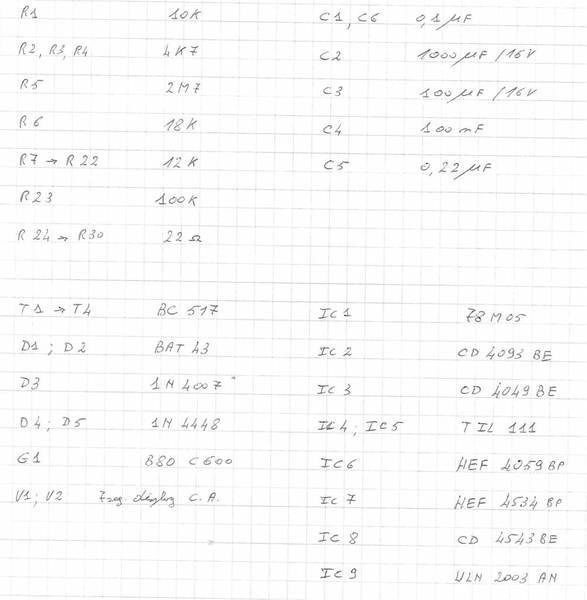 R1 10K C1, C6 0,1 µF
R2, R3, R4 4K7 C2 1000 µF/16V
R5 2M7 C3 100 µF/16V
R6 18K C4 100 mF
R7 → R22 12K C5 0,22 µF
R23 100K
R24 → R30 22 Ω
T1 → T4 BC 517 IC1 78M05
D1 ; D2 BAT 43 IC2 CD 4093 BE
D3 1N 4007 IC3 CD 4049 BE
D4 ; D5 1N 4448 IC4 ; IC5 TIL 111
G1 B80 C600 IC6 HEF 4059 BP
V1 ; V2 7 seg. display C.A. IC7 HEF 4534 BP
IC8 CD 4543 BE
IC9 ULN 2003 AN